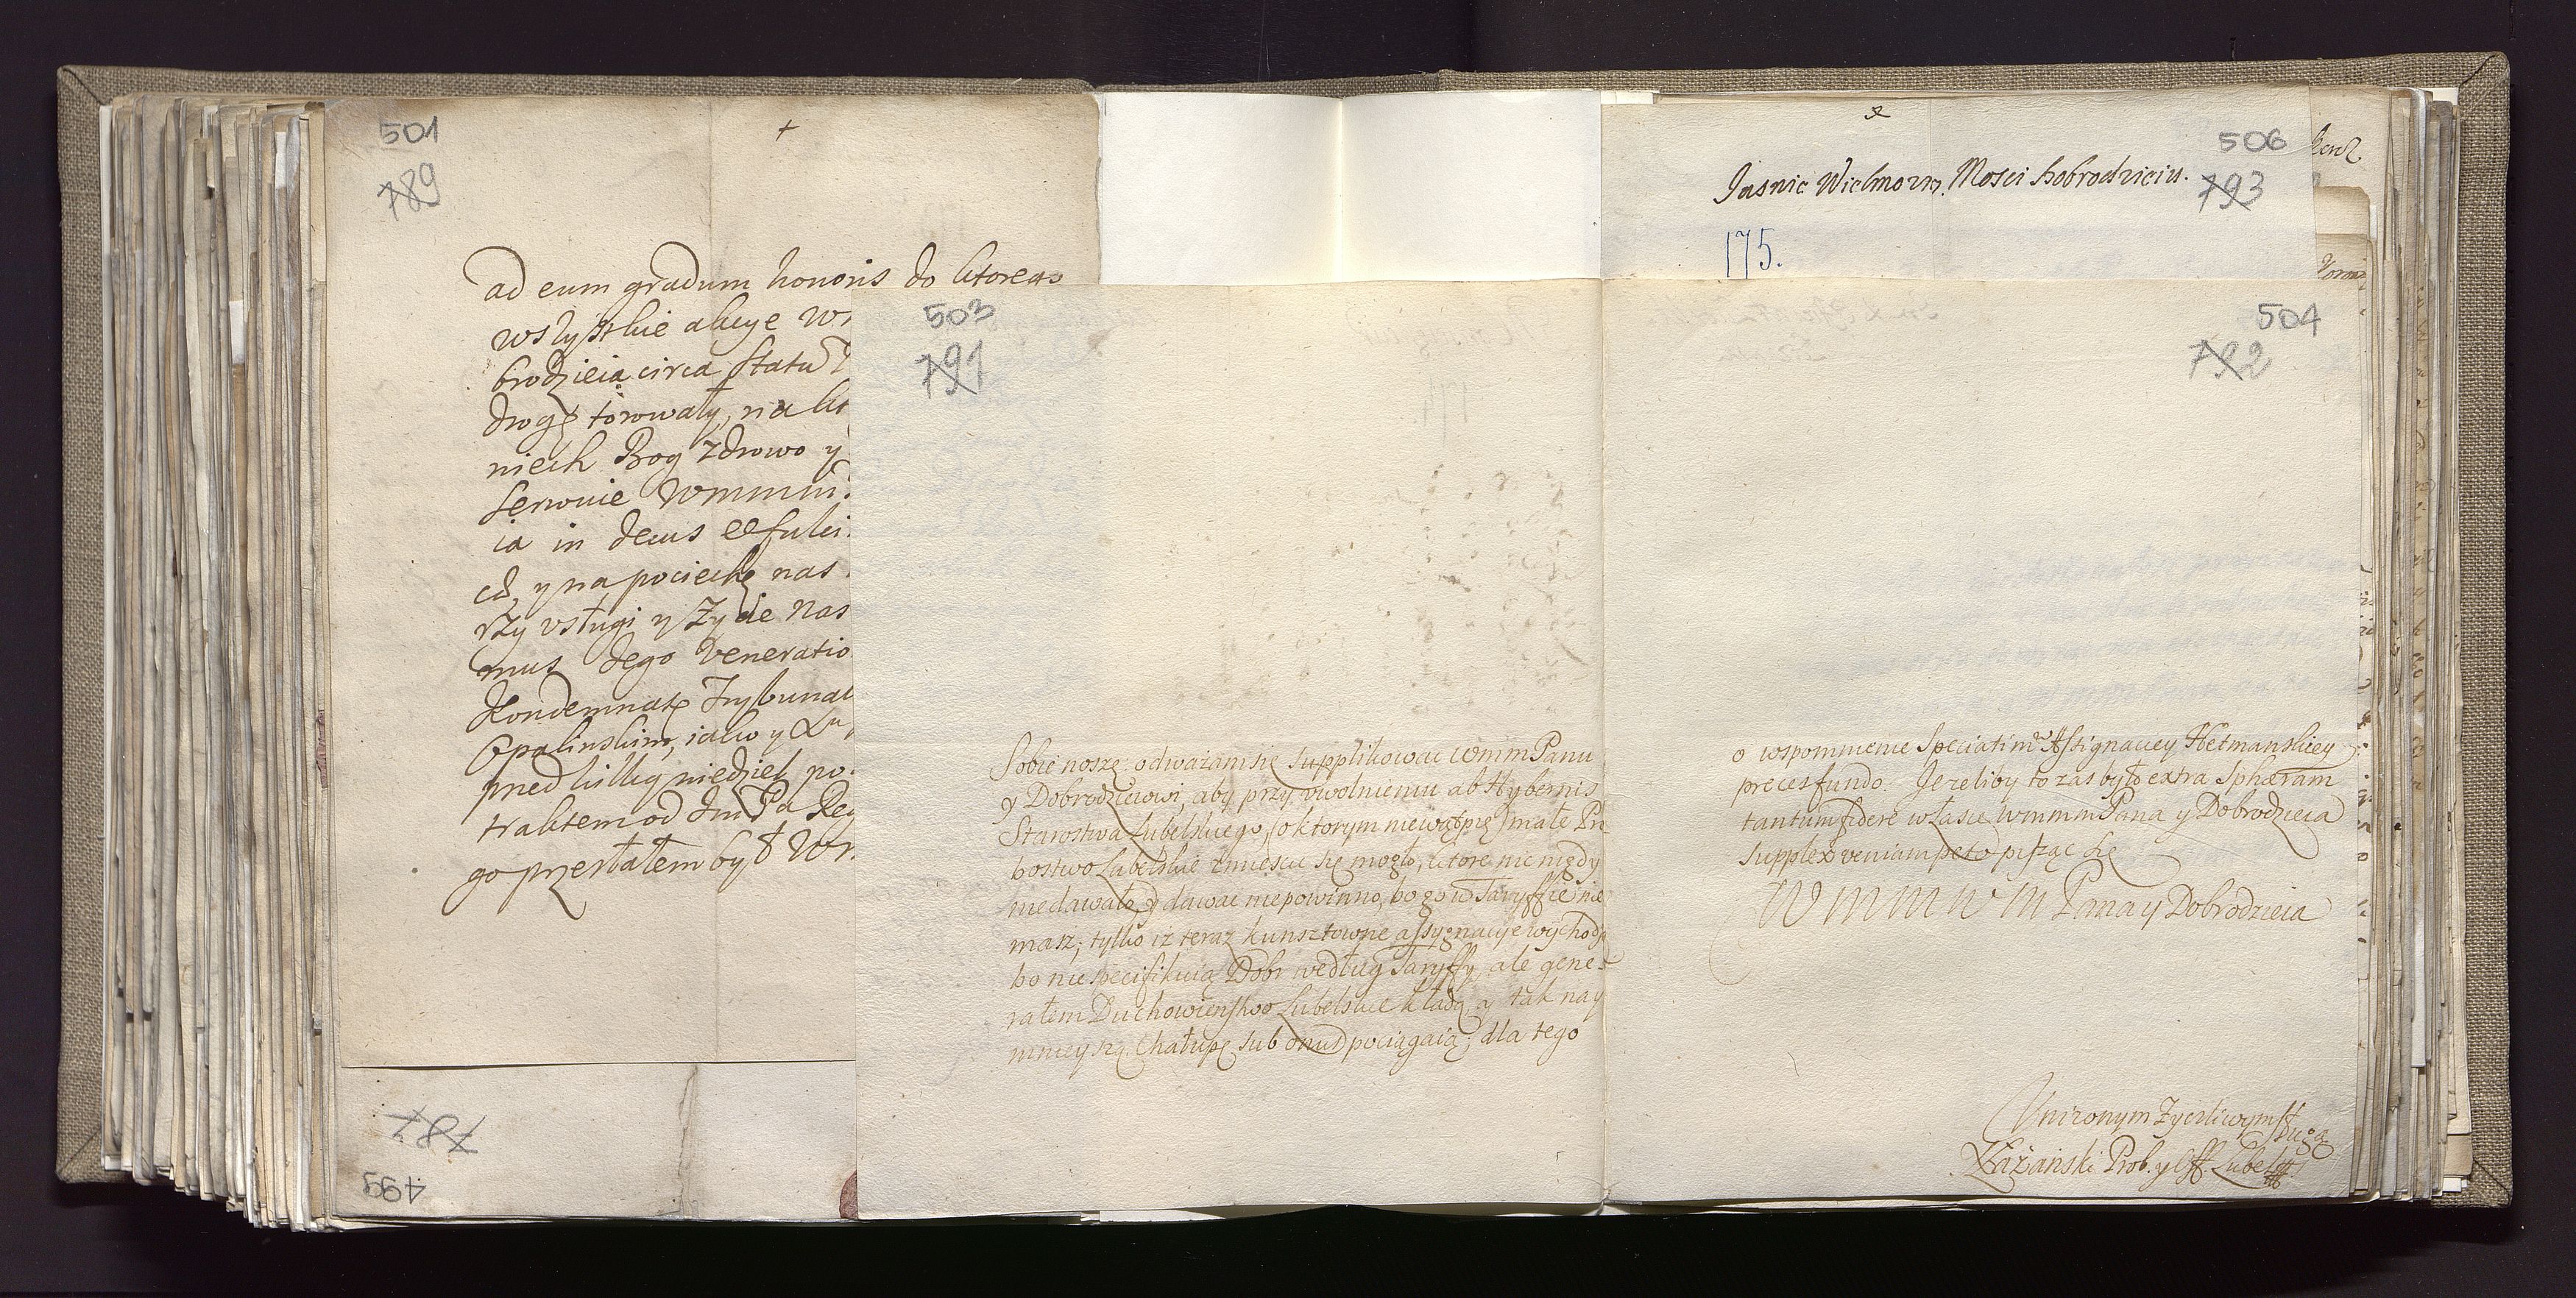 501
789
+
ad eum gradum honoris do ktorego
wszystkie akcye
brodzieia circa statu
drogę torowały, na
niech Bog zdrowo y
serwuie Wmmm
ia in decus et
y na pociechę nas
rzy usługi y Zycie nas
mus Jego Veneratio
Kondemnatę Trybunal
Opalinskim, iako y
pred kilką niedziel po
traktem od
go przesłałem był
787
499
503
791
Sobie noszę, odważam się supplikować Wmm Panu
y Dobrodzieiowi, aby przy uwolnieniu ab Hybernis
Starostwa Lubelskiego, (o ktorym niewątpię) małe Pro
bostwo Lubelskie zmiescić się mogło, ktore nic nigdy
niedawało, y dawać niepowinno, bo go w Taryffie nie
masz; tylko iż teraz kunsztowne assygnacye wychodzą
bo nie specifikuią Dobr według Taryffy, ale gene-
rałem Duchowienstwo Lubelskie kładą a tak nay
mnieyszą Chałupę sub onus pociągaią; dla tego
504
792
o wspomnienie Speciatim Assignacyey Hetmanskiey
preces fundo. Jezeliby to zas było extra Sphæram
tantum fidere w łasce Wmmm Pana y Dobrodzieia
supplex veniam peto pisząc się
W m m W m Pana y Dobrodzieia
Unizonym Zyczliwym sługą
Łážański Prob. y Off. Lubel
506
793
Jasnie Wielmozny Mosci Dobrodzieiu.
175.